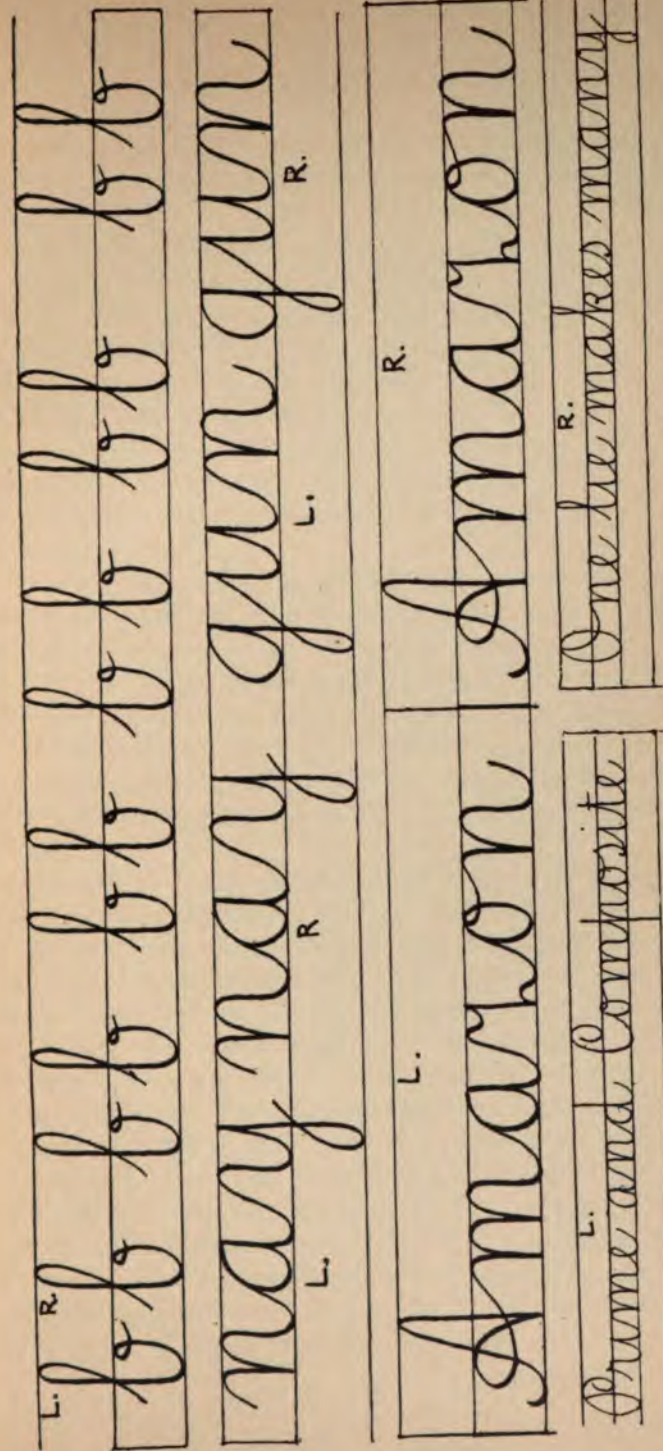 L. R.
b b b b b b b b b b b b
nay nay gun gun
L. R L. R.
L. R.
Amaron Amaron
L. R.
Prime and Composite One lie makes many